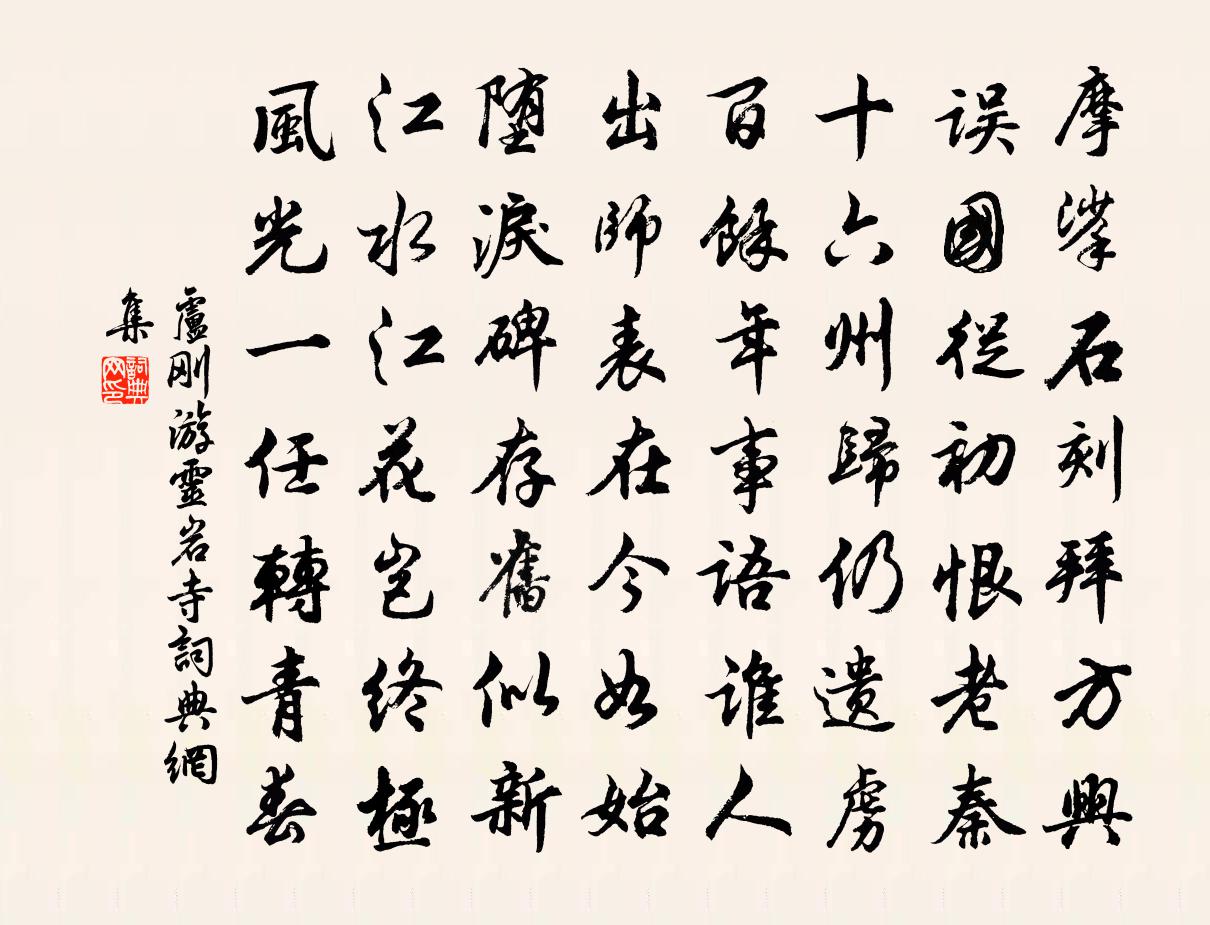 摩挲石刻拜方興
誤國從初恨老秦
十六州歸仍遺虜
百餘年事語誰人
出師表在今如始
墮淚碑存舊似新
江水江花豈終極
風光一任轉青春
盧剛游靈岩寺詞典網
集
詞典網印